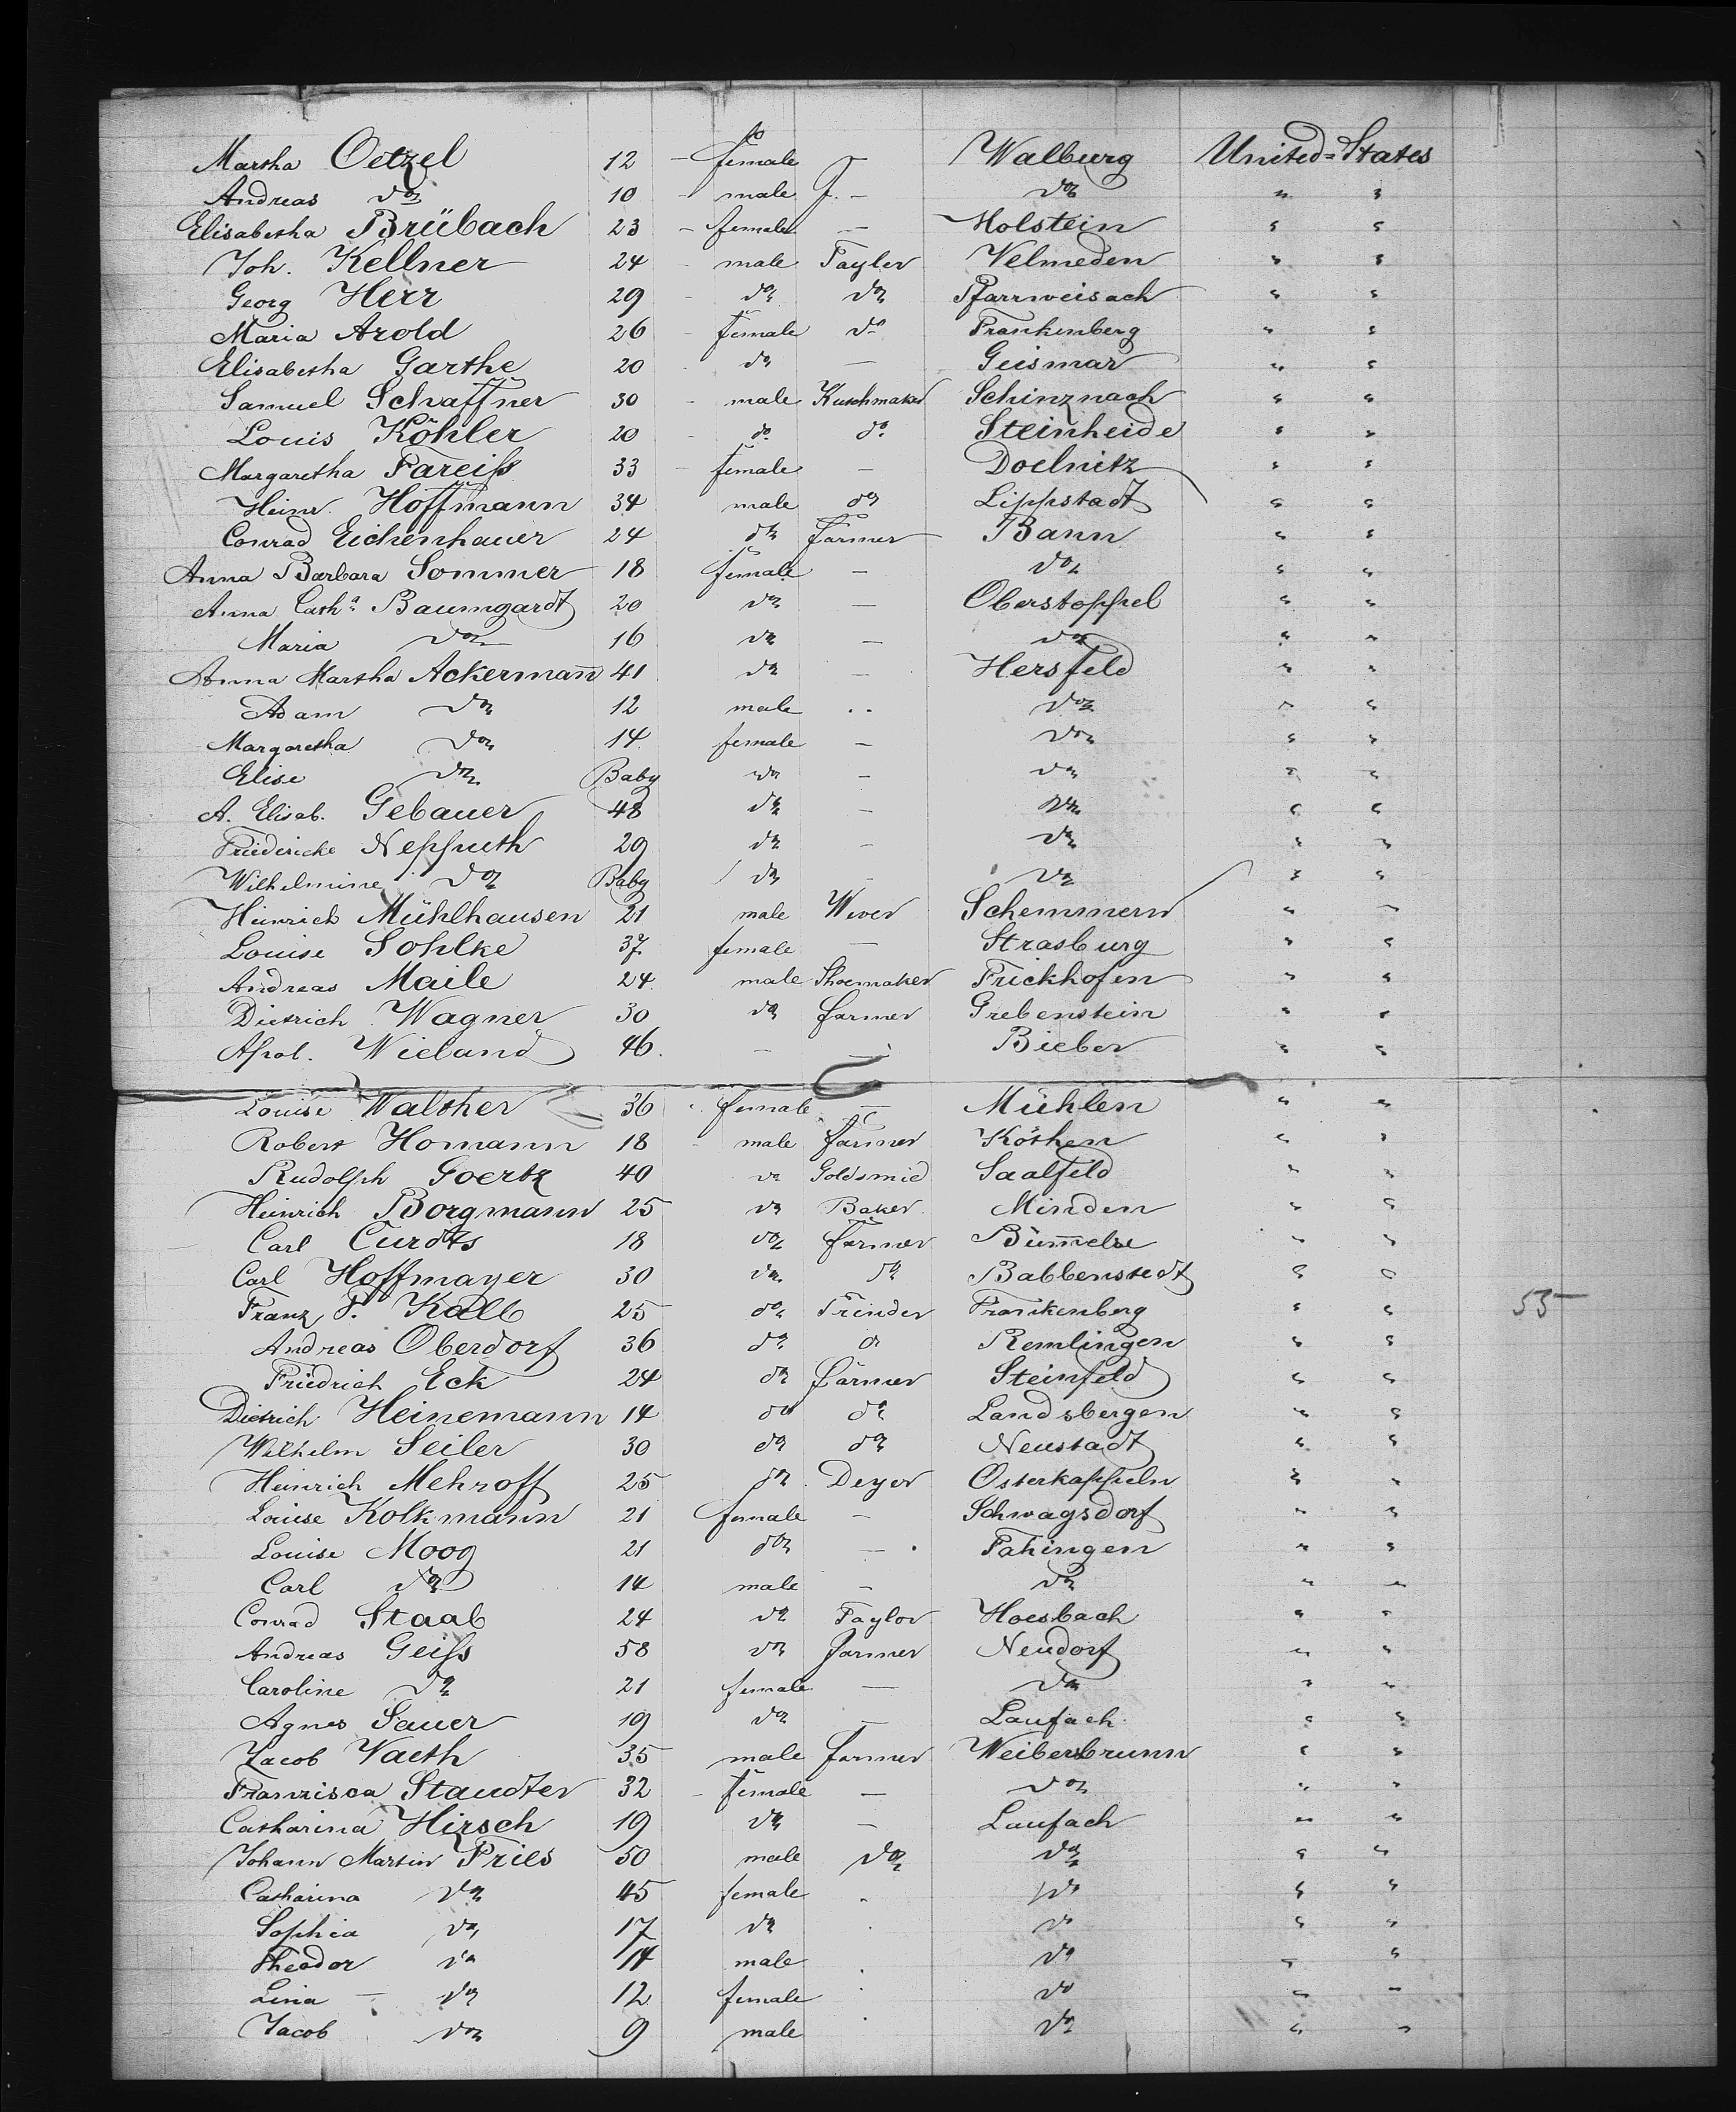 Martha Oetzel 12 - female - Walburg United=States
Andreas do 10 - male - do " "
Elisabetha Brübach 23 - female - Holstein " "
Joh. Kellner 24 - male Taylor Velmeden " "
Georg Herr 29 - do do Pfarrweisach " "
Maria Arold 26 - female do Frankenberg " "
Elisabetha Garthe 20 do - Geismar " "
Samuel Schaffner 30 - male Schinznach " "
Louis Köhler 20 - do do Steinheide " "
Margaretha Fareiß 33 - female - Doelnitz " "
Heinr. Hoffmann 34 male do Lippstadt " "
Conrad Eichenhauer 24 do farmer Bann " "
Anna Barbara Sommer 18 female - do " "
Anna Cath.a Baumgardt 20 do - Oberstoppel " "
Maria do 16 do - do " "
Anna Martha Ackermañ 41 do - Hersfeld " "
Adam do 12 male .. do " "
Margaretha do 14 female - do " "
Elise do Baby do - do " "
A. Elisab. Gebauer 48 do - do " "
Friedericke Nepputh 29 do - do " "
Wilhelmine do Baby do - do " "
Heinrich Mühlhausen 21 male Wever Schemmern " "
Louise Sohlke 37 female - Strasburg " "
Andreas Maile 24 male Shoemaker Frickhofen " "
Dietrich Wagner 30 do farmer Grebenstein " "
Wieland 46. - - Bieber " "
Louise Walther 36 female - Mühlen " "
Robert Homann 18 - male farmer Köthen " "
Rudolph Goertz 40 do Goldsmid Saalfeld " "
Heinrich Borgmann 25 do Baker Minden " "
Carl Curdts 18 do farmer " "
Carl Hoffmayer 30 do do Babbenstedt " "
Franz P. Kalb 25 do Frankenberg " " 55-
Andreas Oberdorf 36 do do Remlingen " "
Friedrich Eck 24 do farmer Steinfeld " "
Dietrich Heinemann 14 do do Landsbergen " "
Wilhelm Seiler 30 do do Neustadt " "
Heinrich Mehroff 25 do Deyer Osterkappeln " "
Louise Kolkmann 21 female - Schwagsdorf " "
Louise Moog 21 do - Fahingen " "
Carl do 14 male - do " "
Conrad Staab 24 do Taylor Hoesbach " "
Andreas Geiß 58 do farmer Neudorf " "
Caroline do 21 female - do " "
Agnes Sauer 19 do - Laufach " "
Jacob Vaeth 35 male farmer Weibersbrunn " "
Franzisca Staudter 32 - female - do " "
Catharina Hirsch 19 do - Laufach " "
Johann Martin Fries 50 male do do " "
Catharina do 45 female do " "
Sophia do 17 do do " "
Theodor do 14 male do " "
Lina do 12 female do " "
Jacob do 9 male do " "